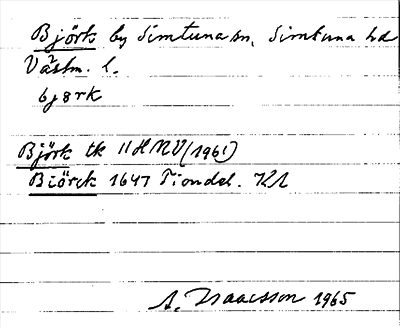 Björk by Simtuna sn, Simtuna hd
Västm. l.
bjørk
Björk tk 11H NV (1961)
Biörck 1647 Tiondel. KA
A. Isaacsson 1965